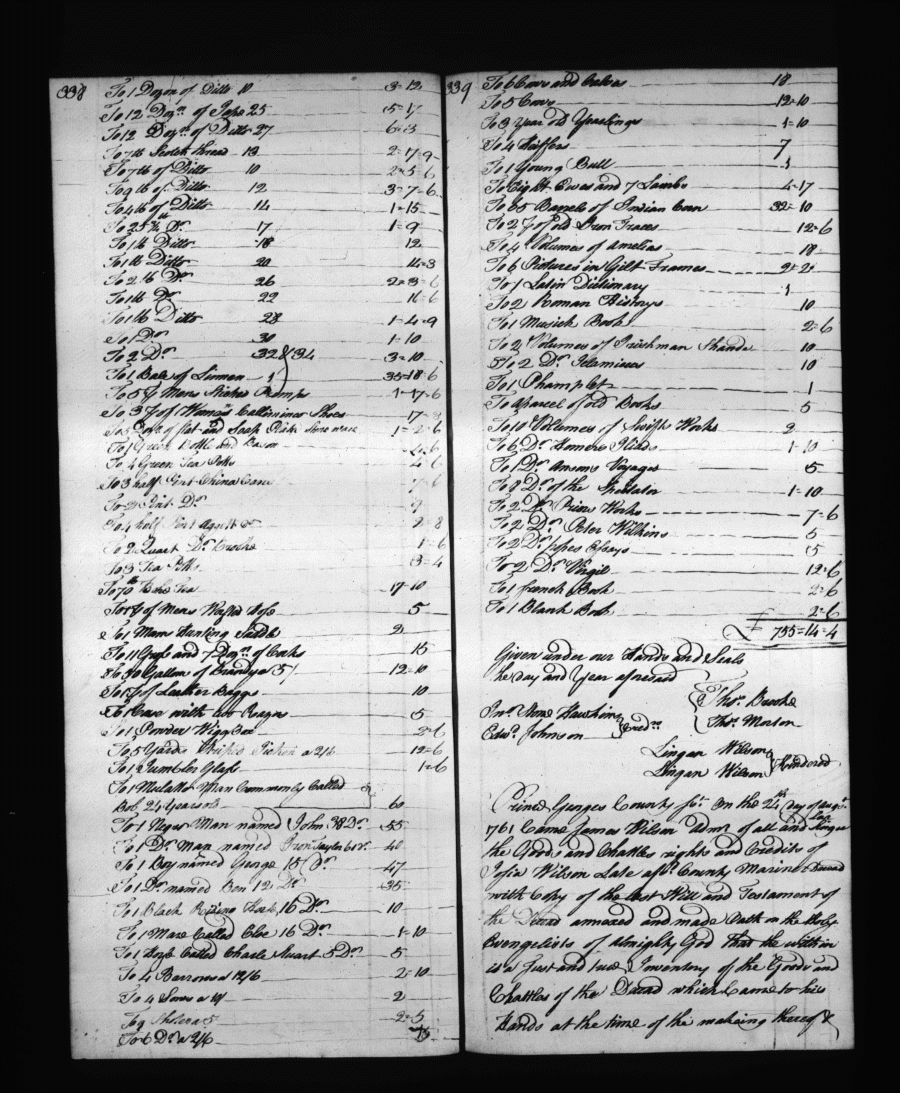 338
To 1 Dozen of Ditto 10 3=12
To 12 Dozn. of Tops 25 5=17
To 12 Dozn. of Ditto 27 6=3
To 7 lb Scotch thread 2=17=9
To 7 lb of Ditto 10 2=5=6
To 9 lb of Ditto 12 3=7=6
To 4 lb of Ditto 14 1=15
To Do. 17 1=9
To 1 lb Ditto 18 12
To 1 lb Ditto 20 14=3
To 2 lb Do. 26 2=3=6
To 1 lb Do. 22 16=6
To 1 lb Ditto 28 1=4=9
To 1 Do. 30 1=10
To 2 Do. 32 & 34 3=10
To 1 Bale of Linnen 1 35=18=6
To 5 pr Mens Pumps 1=17=6
To 3 pr of Womens Callimineo Shoes 17
To 3 Dozn. of flat and Soop Plates Stone ware 1=2=6
To 1 Green Bottle and Bason
To 4 Green Tea Potts 4=6
To 3 half Pint China Cans
To 2 Pint Do.
To 4 half Pint 2=8
To 2 Quart Do. 1=6
To 3 Tea Potts 3=4
Tea 17=10
To pr of Mens Hose 5
To 1 Mans Hunting Saddle 2
To 11 Gross and 7 Dozn. of Corks 15
To Gallons of Brandy a 5/ 12=10
To 1 pr of Leather Baggs 10
To 1 Case with two Razors 5
To 1 Powder Wigg Box 2=6
To 5 Yards Striped a 2/6 12=6
To 1 Tumbler Glass 1=6
To 1 Mulatto Man Commonly Called
Bob 24 Years old 60
To 1 Negro Man named John 38 Do. 55
To 1 Do. Man named 40
To 1 Boy named George 15 Do. 47
To 1 Do. named Ben 12 Do. 35
To 1 Black Riding Horse 16 Do. 10
To 1 Mare Called Cloe 16 Do. 1=10
To 1 Horse Called Charles Stuart 5 Do. 5
To 4 Barrows a 12/6 2=10
To 4 Sows a 10/ 2
To 9 Shoters a 5 2=5
To 6 Do. a 2/6 15
339
To 6 Cows and Calves 18
To 5 Cows 12=10
To 3 Year old Yearlings 1=10
To 4 Haiffers 7
To 1 Young Bull 1
To Eight Ewes and 7 Lambs 4=17
To 65 Barrels of Indian Corn 32=10
To 2 pr of old Iron Traces 12=6
To 4 Volumes of Amelias 18
To 6 Pictures in Gilt Frames 2=2
To 1 Latin Dictionary 1
To 2 Roman Historys 10
To 1 Musick Book 2=6
To 2 Volumes of Trishman Shande 10
To 2 Do. 10
To 1 Phamplet 1
To a parcel of old Books 5
To 10 Volumes of Swifts Works 2
To 6 Do. Homers Iliads 1=10
To 1 Do. Ansons Voyages 5
To 8 Do. of the Spectator 1=10
To 2 Do. Priors Works 7=6
To 2 Do. Peter Wilkins 5
To 2 Do. Popes Essays 5
To 2 Do. Virgil 12=6
To 1 french Book 2=6
To 1 Blank Book 2=6
£ 755=14=4
Given under our Hands and Seals
the day and Year aforesaid
Thos. Brooke
Jno. Stone Hawkins } Credrs. Thos. Morton
Edwd. Johnson
Lingan Wilson
Lingan Wilson } Kindered
Prince Georges County sct. On the 24th day of Augst.
1761 Came James Wilson Admr. of all and Singular
the Goods and Chattles rights and Credits of
Josia Wilson Late afsd. County Mariner Deceased
with Copy of the Last Will and Testament of
the Decead annexed and made Oath on the Holy
Evangelists of Almighty God That the within
is a Just and true Inventory of the Goods and
Chattles of the Decead which Came to his
Hands at the time of the makeing thereof &